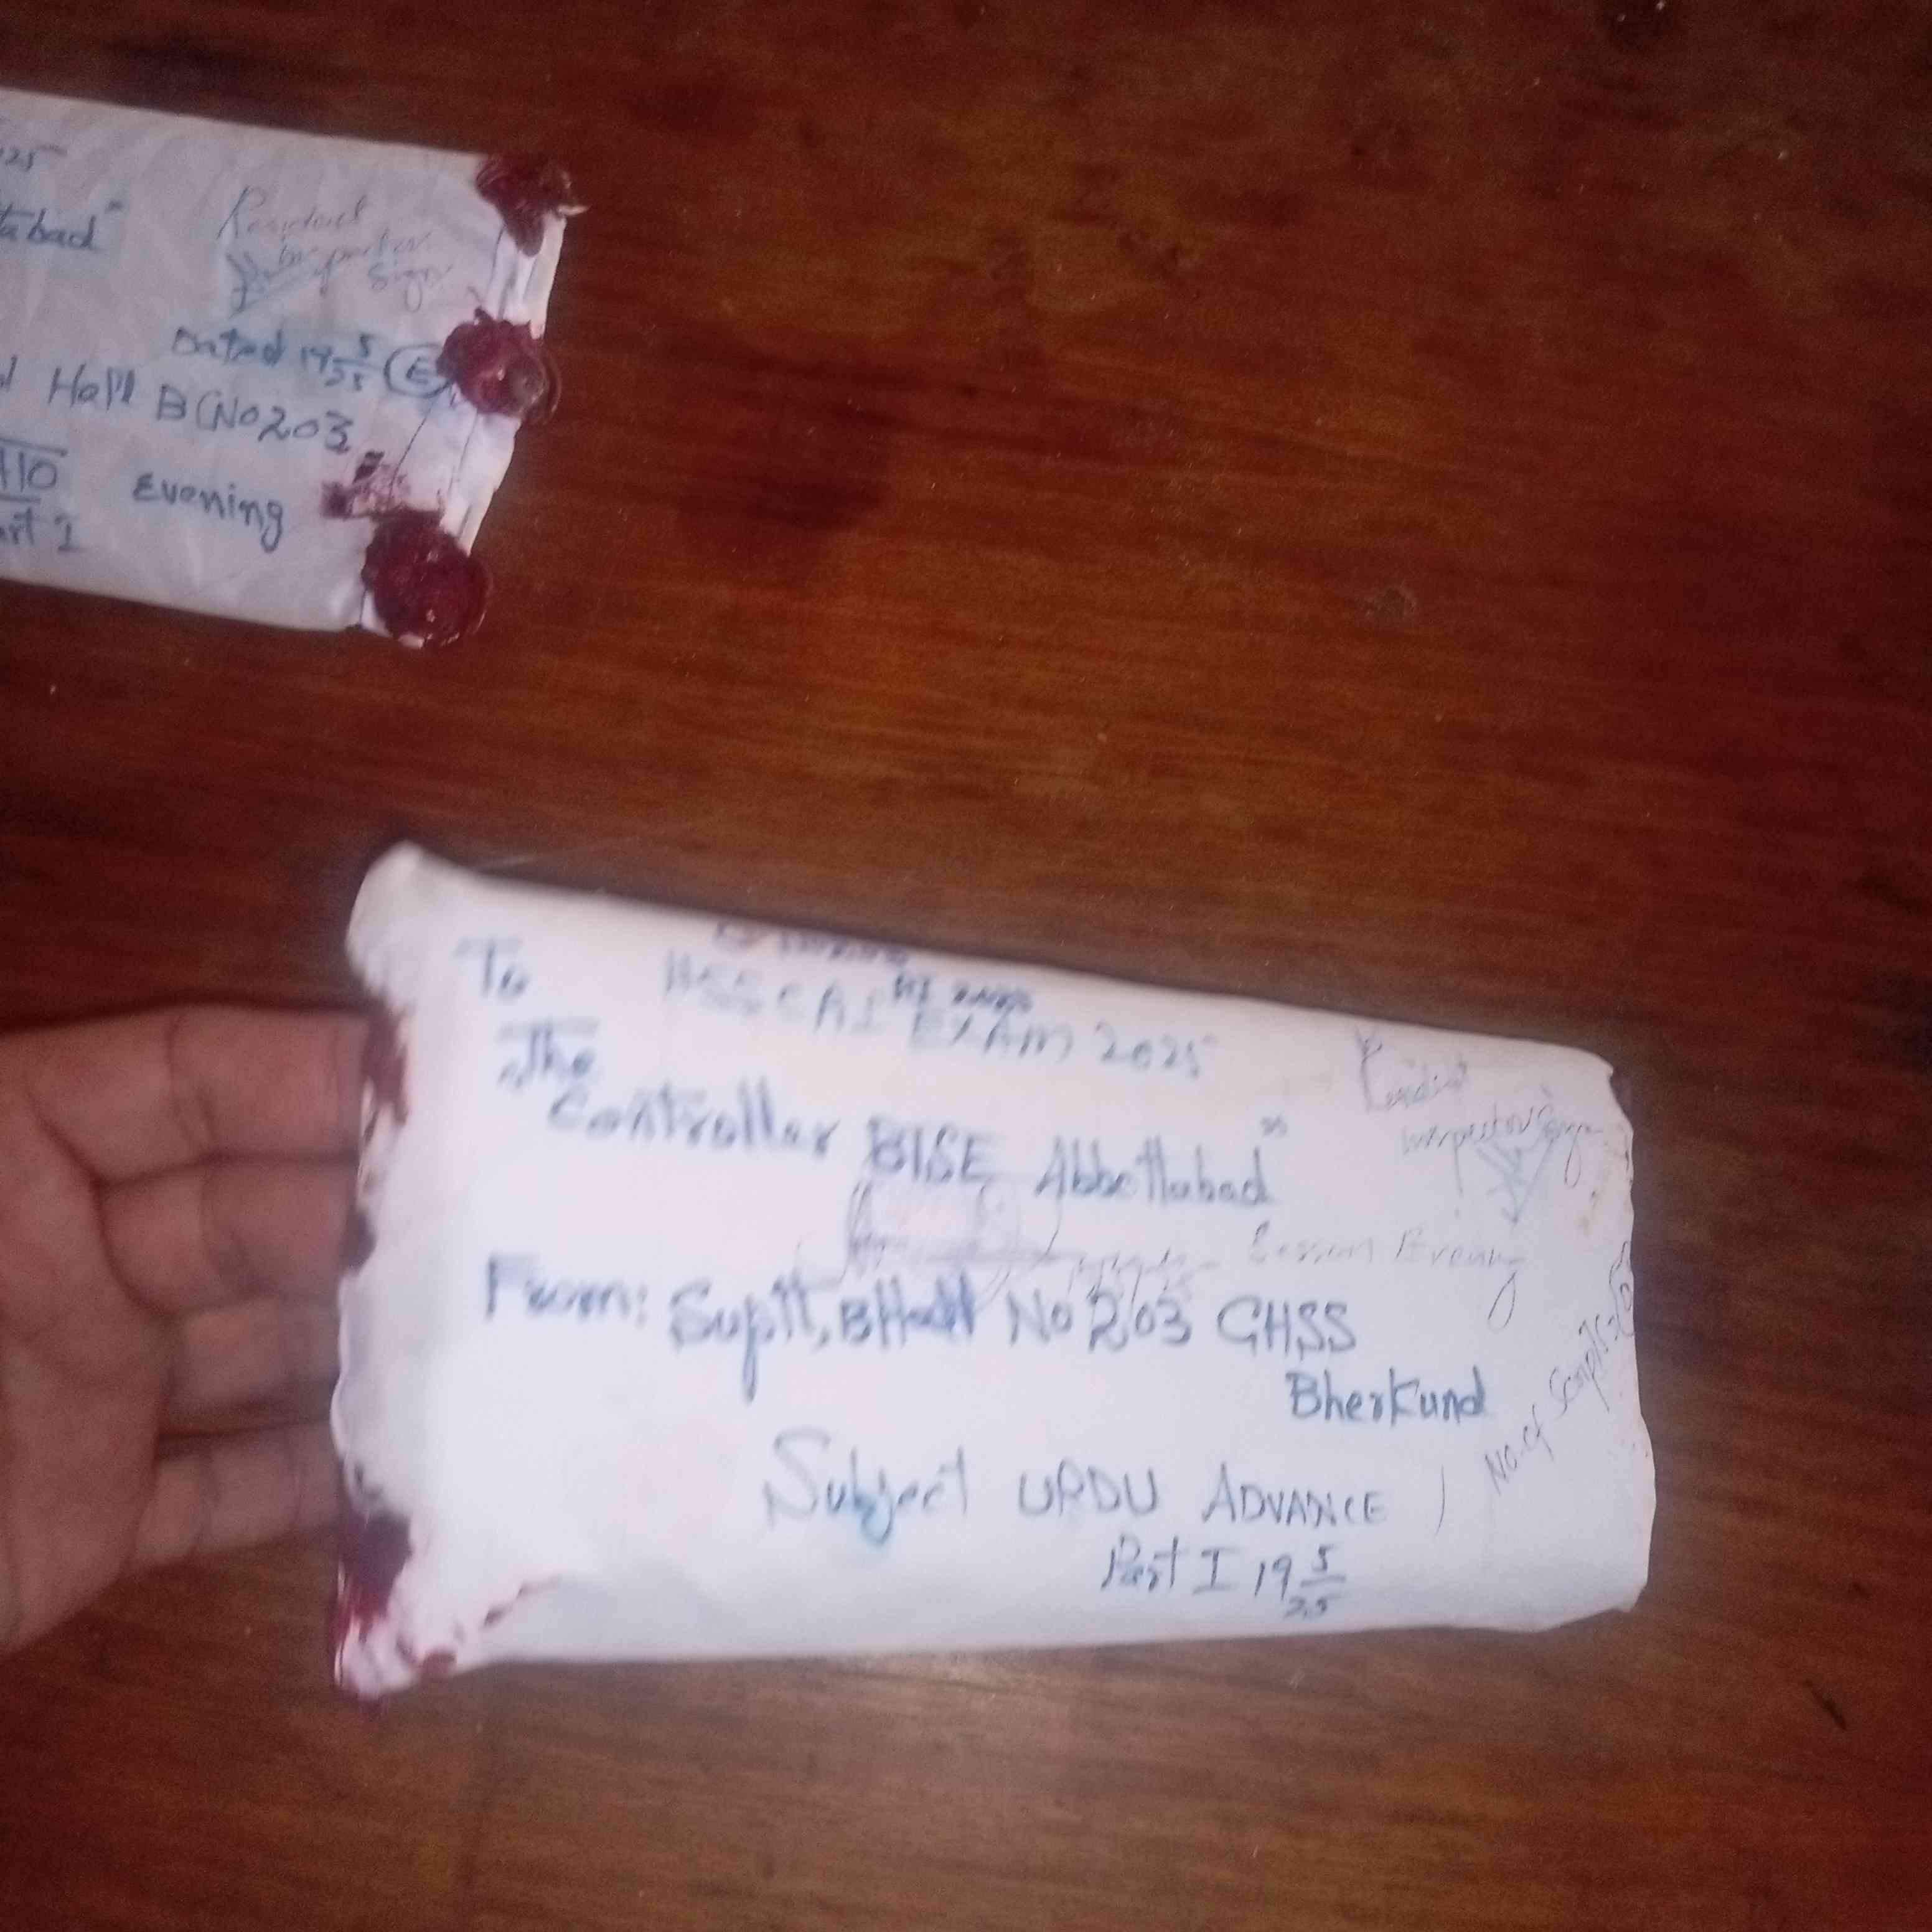 25
tabad"
Resident
Inspector
Sign
Dated 19 5/25 E
Hall B (No 203
A10
Evening
art I
To
HSSC AI EXAM 2025
The
Controller BISE Abbottabad"
Resident
Inspector's Sign
From: Suptt, B Hall No 203 GHSS
Bherkund
No. of Scripts =
Subject URDU ADVANCE
Part I 19 5/25